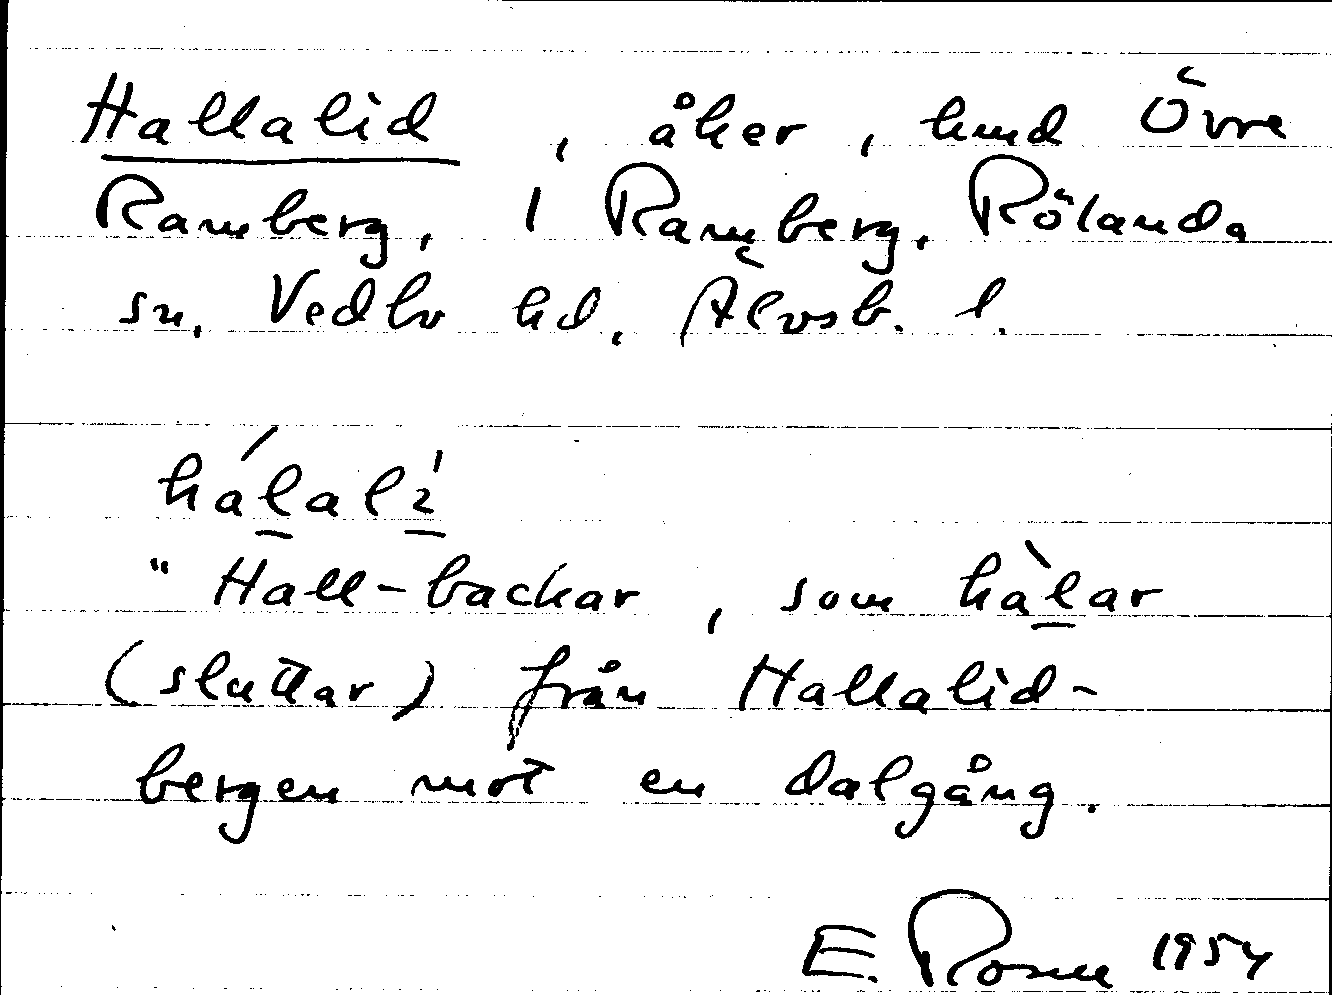 Hallalid, åker, hmd Övre
Ramberg, 1 Ramberg, Rölanda
sn, Vedbo hd, Älvsb. l.
hálalì
"Hall-backar, som hàlar
(sluttar) från Hallalid-
bergen mot en dalgång.
E. Rosen 1954